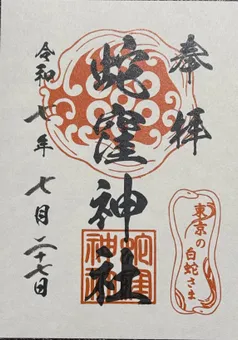 奉拝
蛇窪神社
令和七年 七月二十七日
東京の
白蛇さま
蛇窪
神社